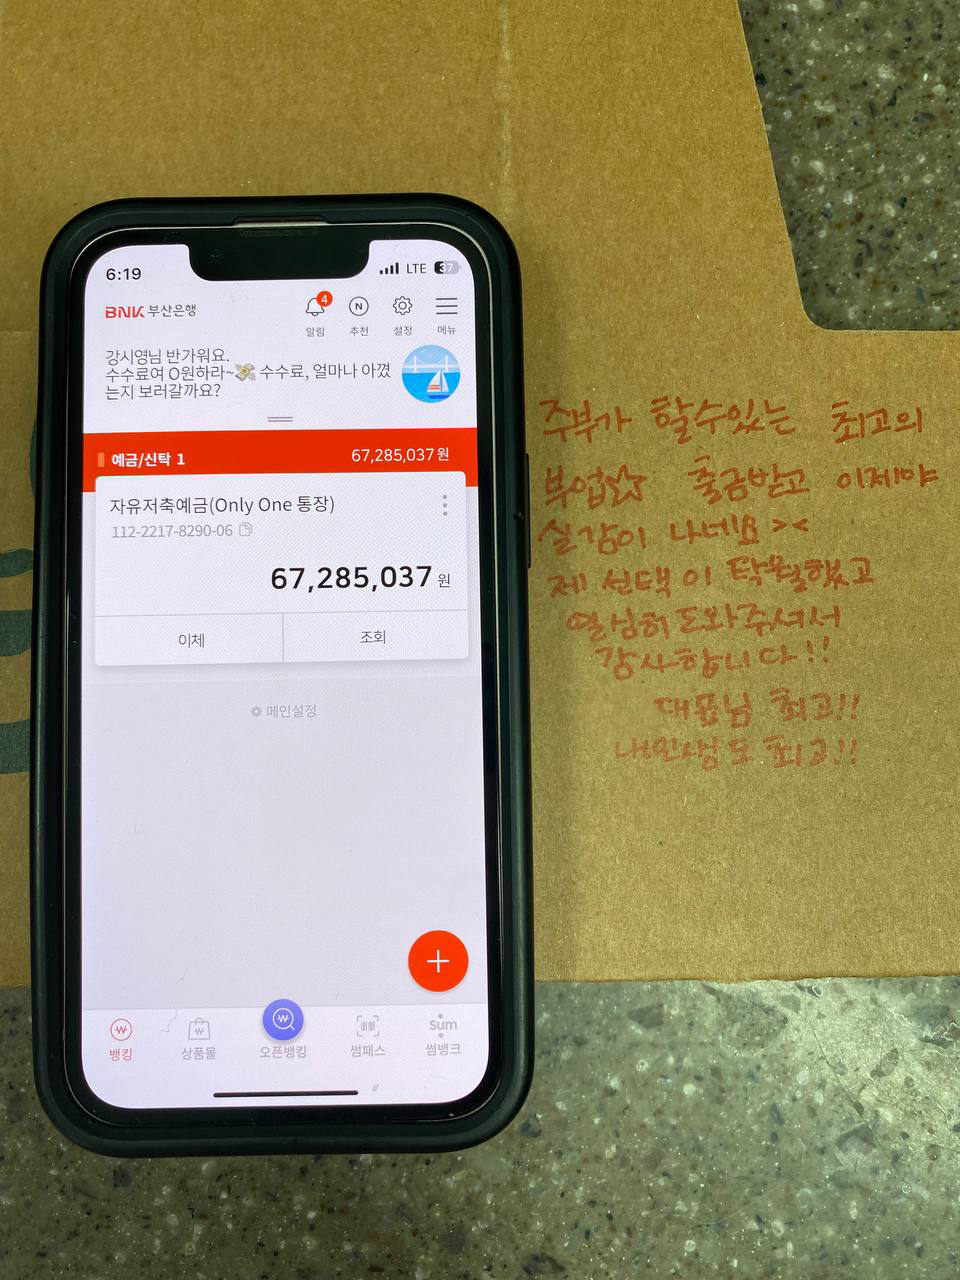 6:19
LTE
37
BNK 부산은행
4
N
알림
추천
설정
메뉴
강시영님 반가워요.
수수료여 0원하라~💸 수수료, 얼마나 아꼈
는지 보러갈까요?
예금/신탁 1
67,285,037원
자유저축예금(Only One 통장)
112-2217-8290-06
67,285,037 원
이체
조회
메인설정
뱅킹
상품몰
오픈뱅킹
썸패스
Sum
썸뱅크
주부가 할수있는 최고의
부업☆☆ 출금받고 이제야
실감이 나네요 ><
제 선택이 탁월했고
열심히 도와주셔서
감사합니다!!
대표님 최고!!
내인생도 최고!!